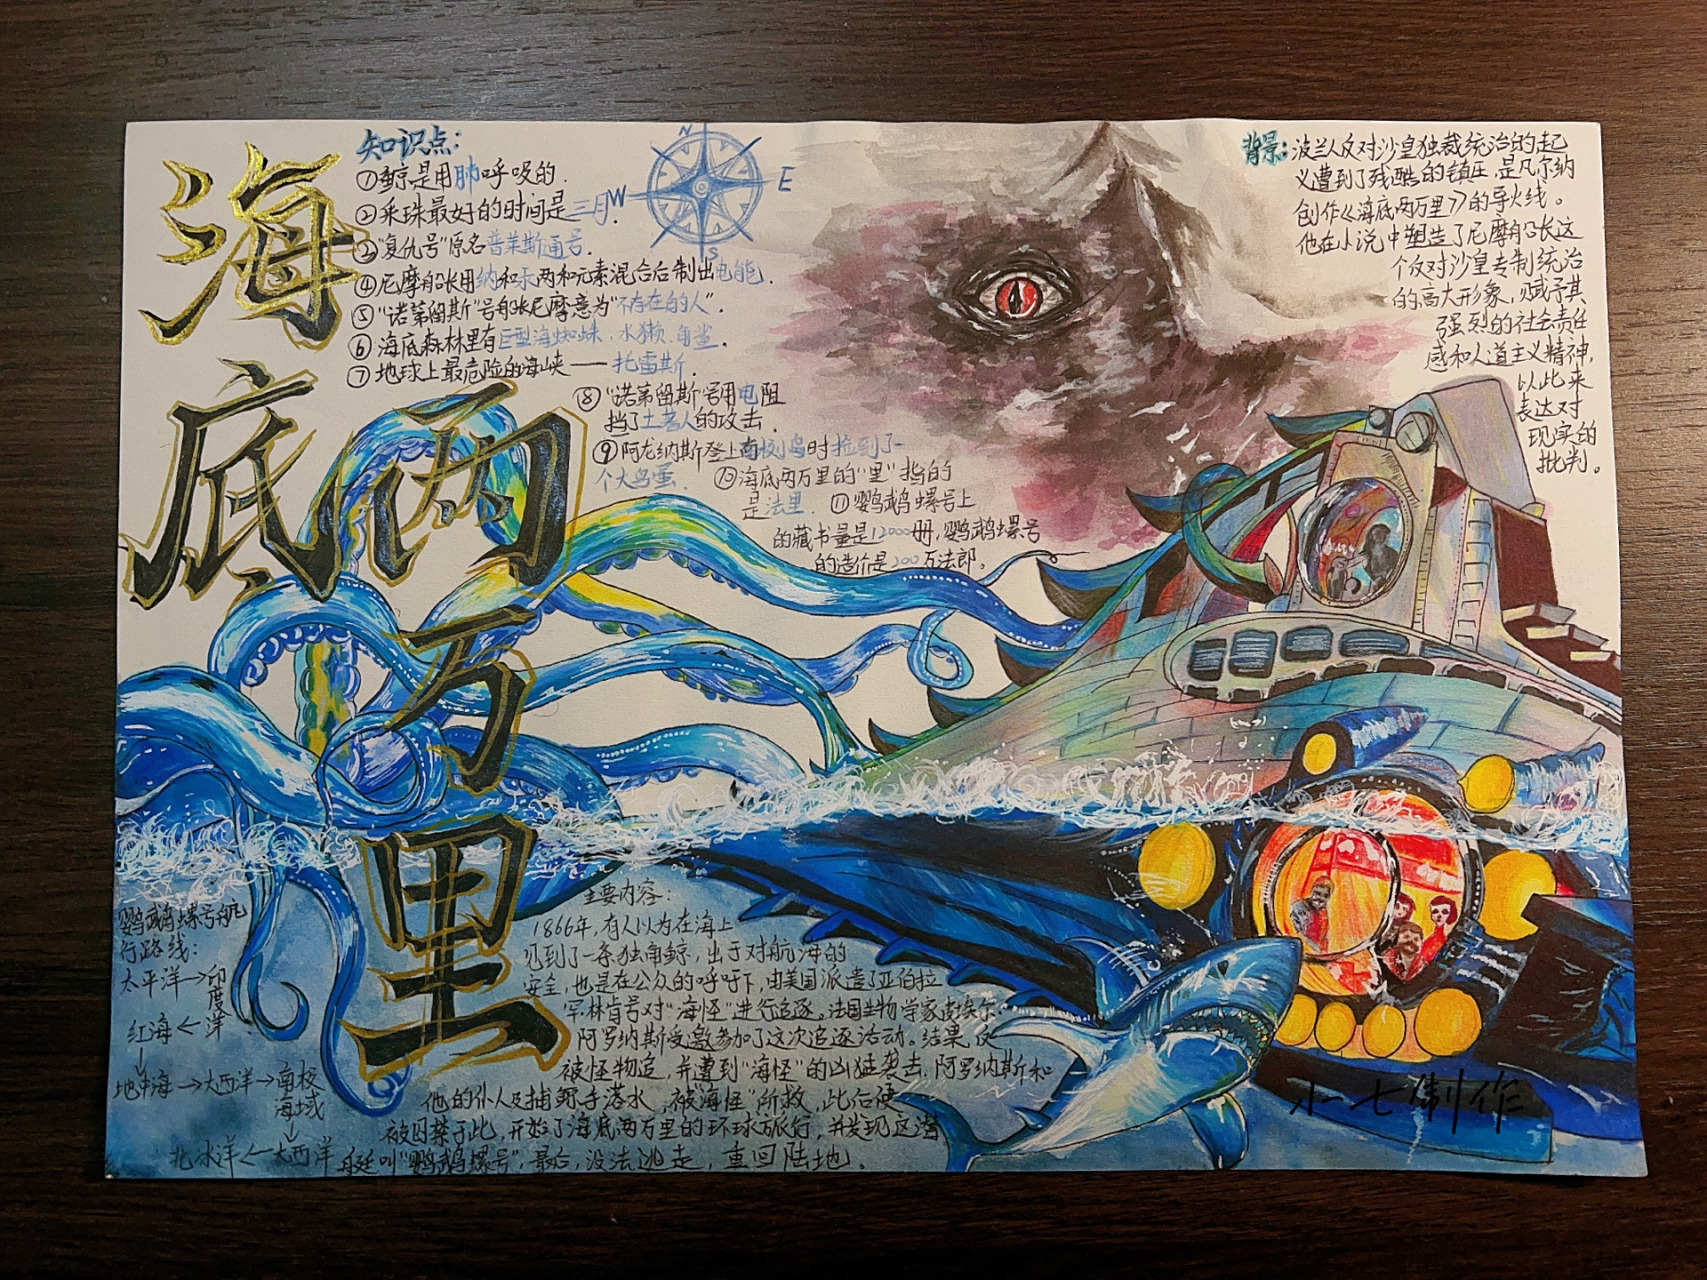 海底两万里
知识点:
①鲸是用肺呼吸的.
②采珠最好的时间是三月.
③"复仇号"原名普莱斯通号.
④尼摩船长用钠和汞两种元素混合后制出电能.
⑤"诺第留斯"号船长尼摩意为"不存在的人".
⑥海底森林里有巨型海蜘蛛、水獭、角鲨.
⑦地球上最危险的海峡——托雷斯.
⑧"诺第留斯"号用电阻
挡了土著人的攻击.
⑨阿龙纳斯登上南极岛时捡到了一
个大鸟蛋.
⑩海底两万里的"里"指的
是法里.
⑪鹦鹉螺号上
的藏书量是12000册,鹦鹉螺号
的造价是200万法郎。
N
W
E
S
背景:波兰人反对沙皇独裁统治的起
义遭到了残酷的镇压,是凡尔纳
创作《海底两万里》的导火线。
他在小说中塑造了尼摩船长这
个反对沙皇专制统治
的高大形象,赋予其
强烈的社会责任
感和人道主义精神,
以此来
表达对
现实的
批判。
鹦鹉螺号航
行路线:
太平洋→印
度
红海←洋
↓
地中海→大西洋→南极
海域
↓
北冰洋←大西洋
主要内容:
1866年,有人以为在海上
见到了一条独角鲸,出于对航海的
安全,也是在公众的呼吁下,由美国派造了亚伯拉
罕林肯号对"海怪"进行追逐。法国生物学家
阿罗纳斯受邀参加了这次追逐活动。结果
被怪物追,并遭到"海怪"的凶猛袭击,阿罗纳斯和
他的仆人及捕鲸手落水,被海怪"所救,此后便
被囚禁于此,开始了海底两万里的环球旅行,并发现这潜
艇叫"鹦鹉螺号",最后,设法逃走,重回陆地。
小七制作